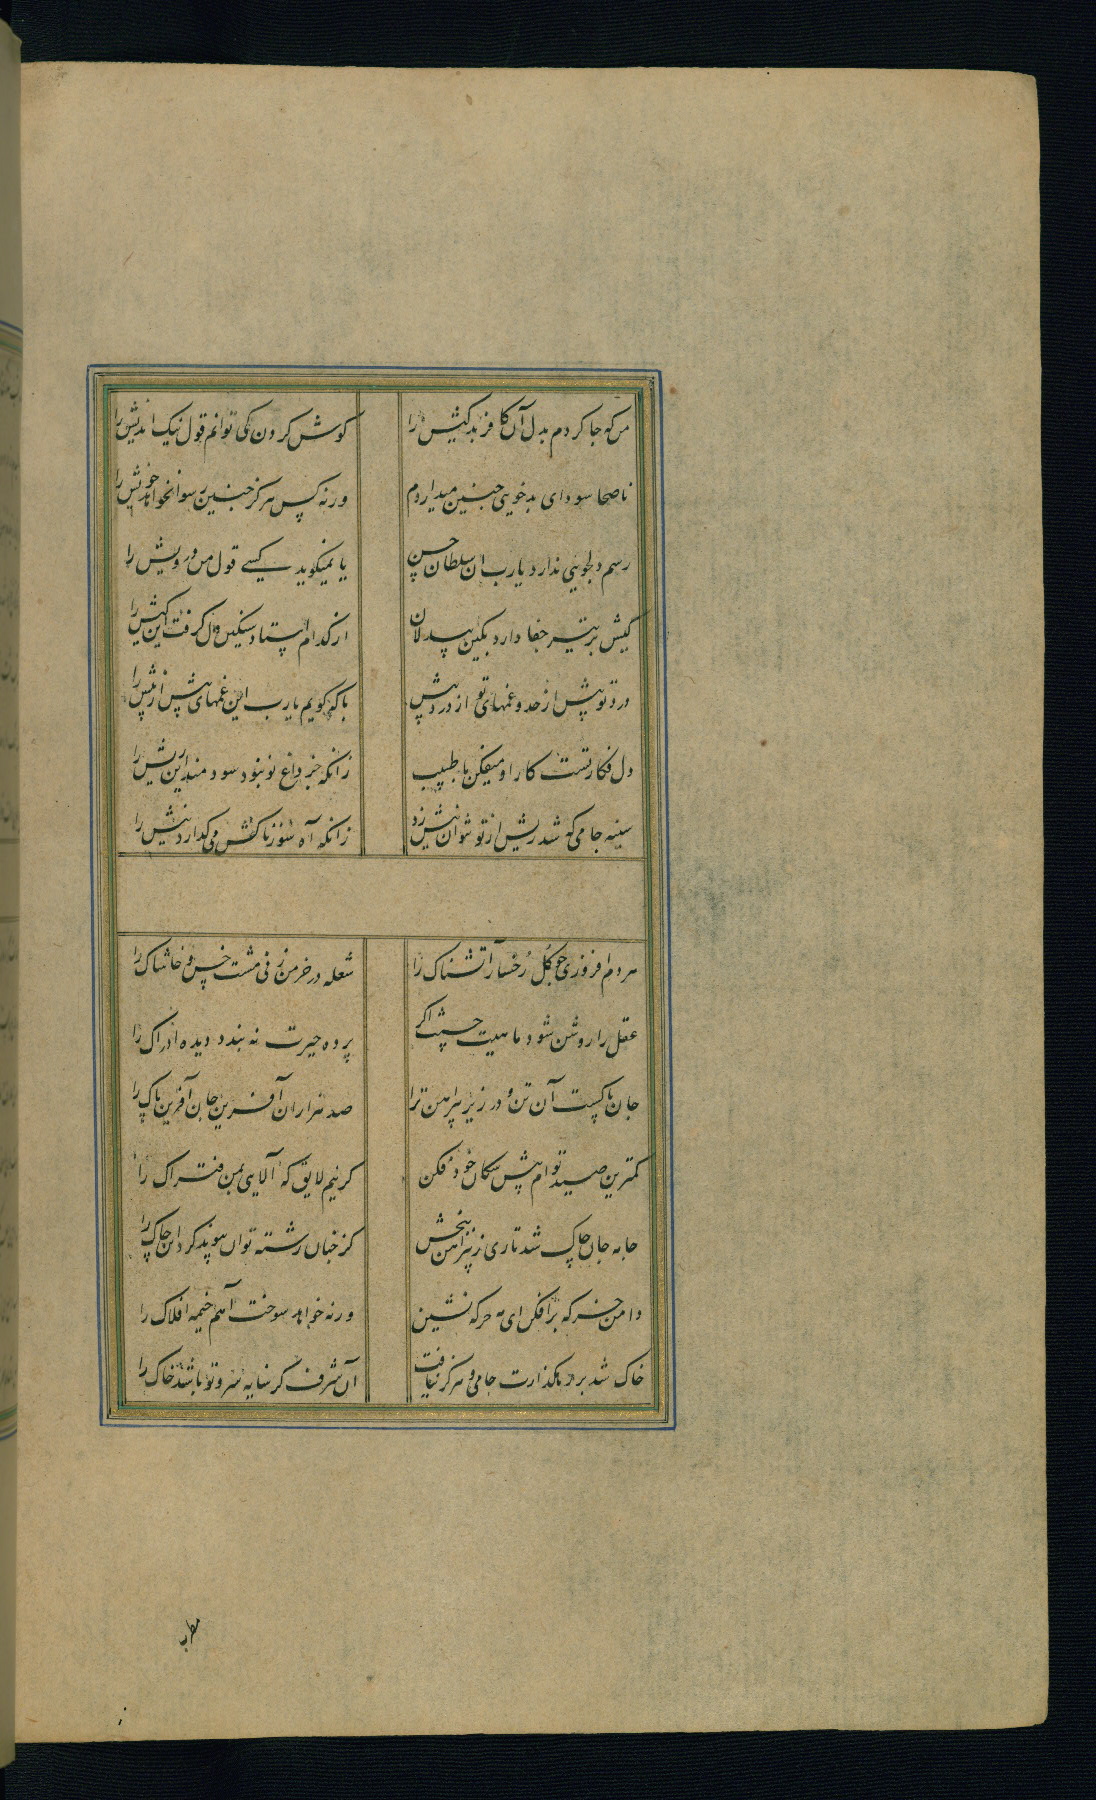 من که جا کردم بدل آن کافر بدکیش را کوش کردن کی توانم قول نیک اندیش را
ناصحا سودای بدخویی چنین میداردم ورنه کس هرکز چنین رسوا نخواهد خویش را
رسم دلجویی ندارد یارب ان سلطان حسن یا نمیکوید کسی قول من درویش را
کیش پر تیر جفا دارد بکین بیدلان از کدام استاد سنکین دل کرفت این کیش را
درد تو بیش از حد و غمهای تو از درد بیش با که کویم یارب این غمهای بیش از بیش را
دل فکار تست کار او میفکن با طبیب زانکه جز داغ تو نبود سودمند این ریش را
سینه جامی که شد ریش از تو نتوان نیش زد زانکه آه سوزناکش می کدازد نیش را
هر دم افروزی چو کل رخسار آتشناک را شعله در خرمن زنی مشت خس و خاشاک را
عقل را روشن شود ماهیت حسنت اکر پرده حیرت نه بندد دیده ادراک را
جان پاکست آن تن و در زیر پیراهن ترا صد هزاران آفرین جان آفرین پاک را
کمترین صید توام پیش سکان خود فکن کر نیم لایق که آلایی بمن فتراک را
جامه جان چاک شد تاری ز پیراهن ببخش کز چنان رشته توان پیوند کرد این چاک را
دامن خرکه برافکن ای مه خرکه نشین ورنه خواهد سوخت آهم خیمه افلاک را
خاک شد بر رهکذارت جامی و هرکز نیافت آن شرف کز سایه سرو تو باشد خاک را
مطرب